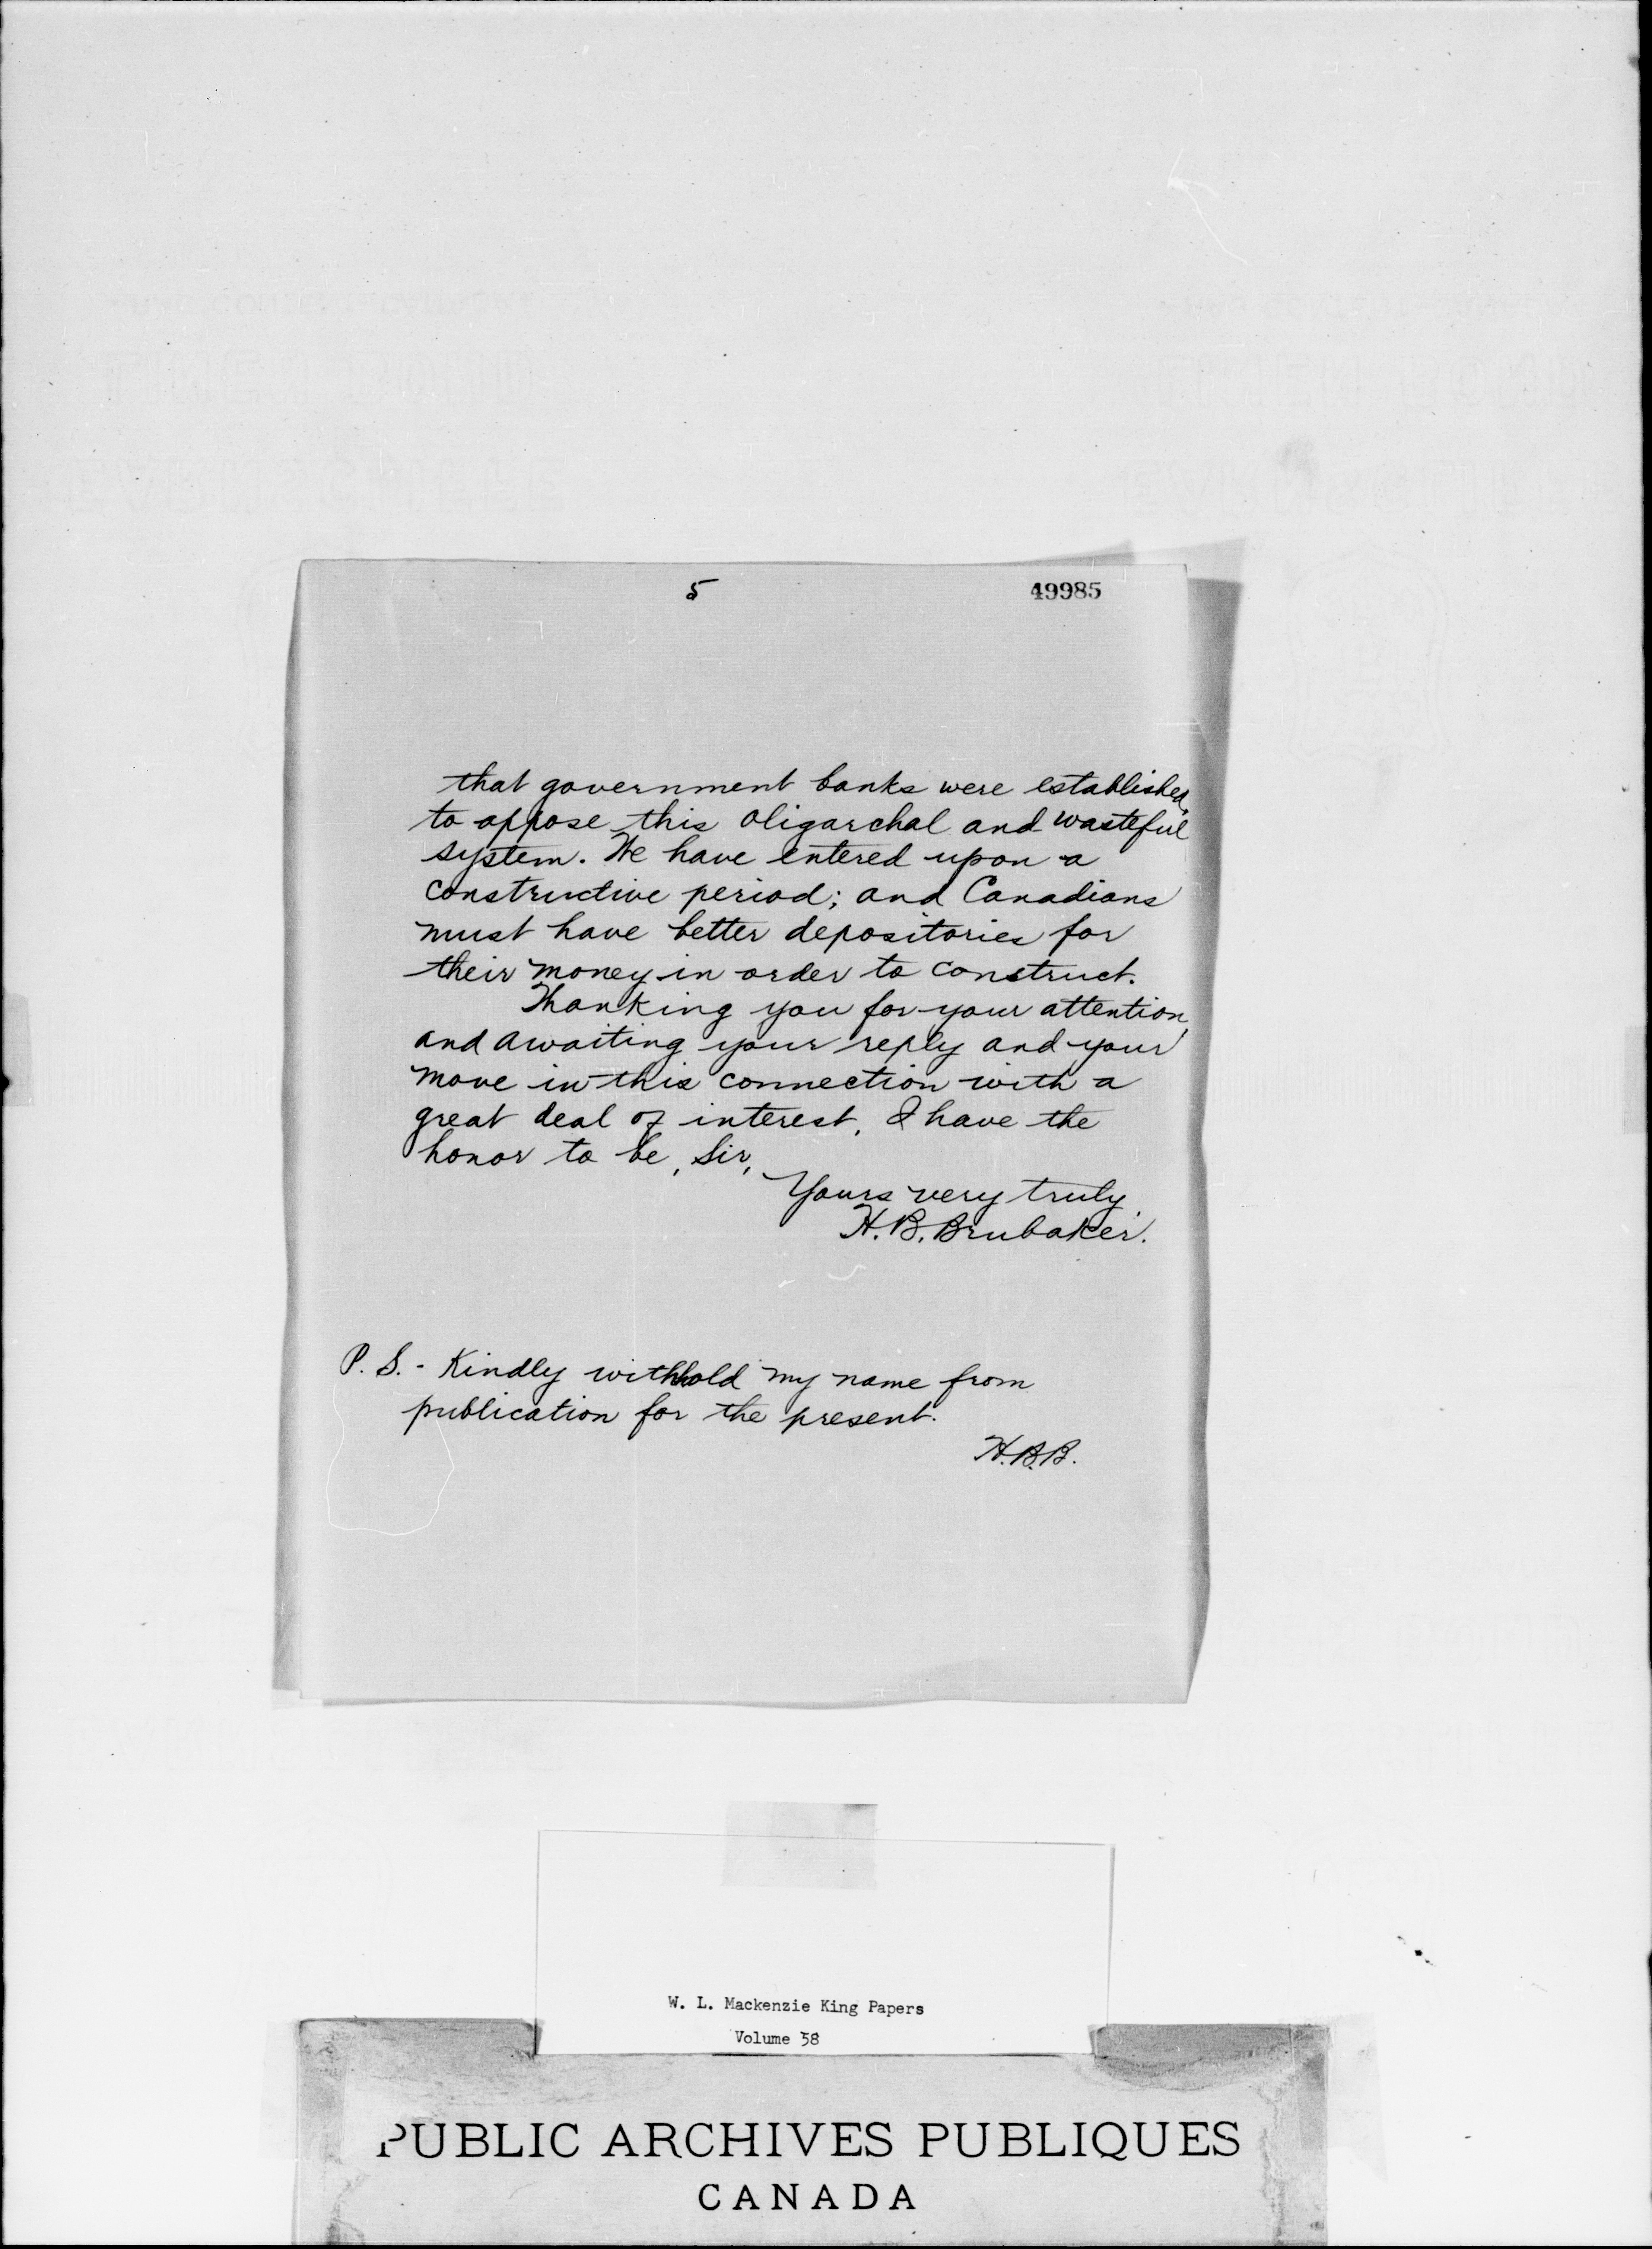 5
49985
that government banks were established,
to oppose this oligarchal and wasteful
system. We have entered upon a
constructive period; and Canadians
must have better depositories for
their money in order to construct.
Thanking you for your attention,
and awaiting your reply and your
move in this connection with a
great deal of interest, I have the
honor to be, Sir,
Yours very truly
H. B. Brubaker.
P. S. - Kindly withhold my name from
publication for the present.
H.B.B.
W. L. Mackenzie King Papers
Volume 58
PUBLIC ARCHIVES PUBLIQUES
CANADA